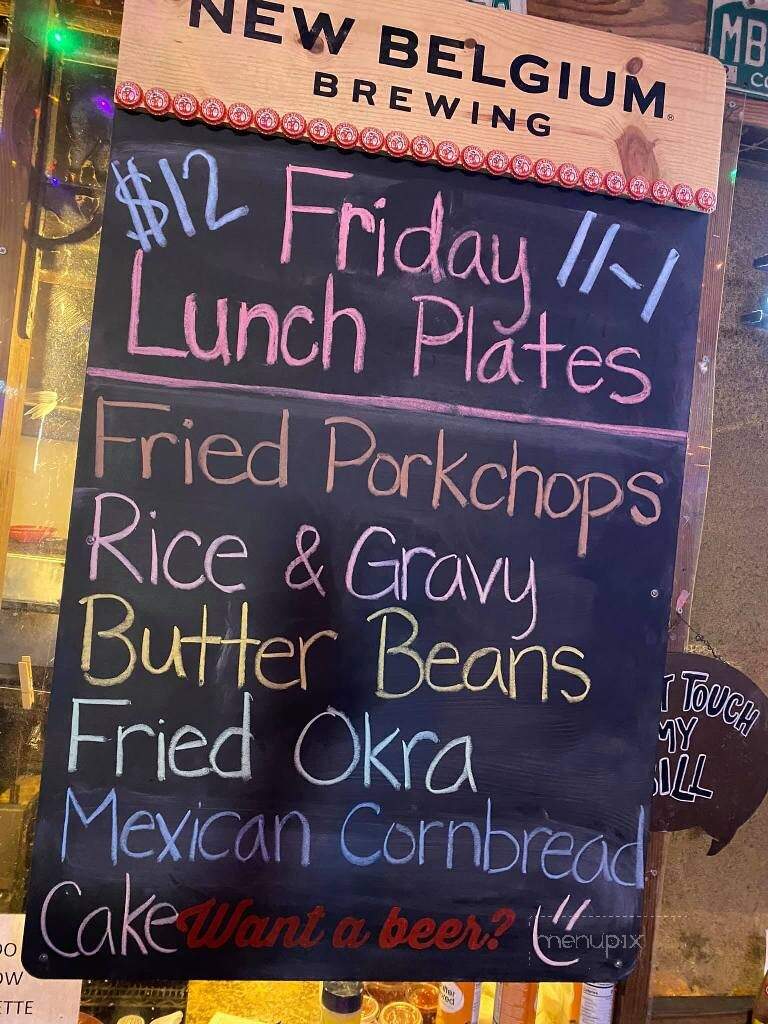 NEW BELGIUM
BREWING
$12 Friday 11-1
Lunch Plates
Fried Porkchops
Rice & Gravy
Butter Beans
Fried Okra
Mexican Cornbread
Cake Want a beer?
menupix
TOUCH
MY
MB